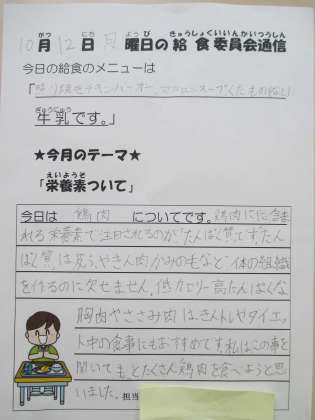 10月12日 月曜日の給食委員会通信
がつ にち ようび きゅうしょくいいんかいつうしん
今日の給食のメニューは
ぎゅうにゅう
牛乳です。」
★今月のテーマ★
えいようそ
「栄養素ついて」
今日は 鶏肉 についてです。鶏肉にに含ま
れる栄養素で注目されるのが「たんぱく質」です。たん
ぱく質は皮ふやきん肉かみの毛など、体の組織
を作るのに欠せません。低カロリー高たんぱくな
胸肉やささみ肉は、きんトレやダイエッ
ト中の食事にもおすすめです。私はこの事を
聞いてもとたくさん鶏肉を食べようと思
いました。 担当